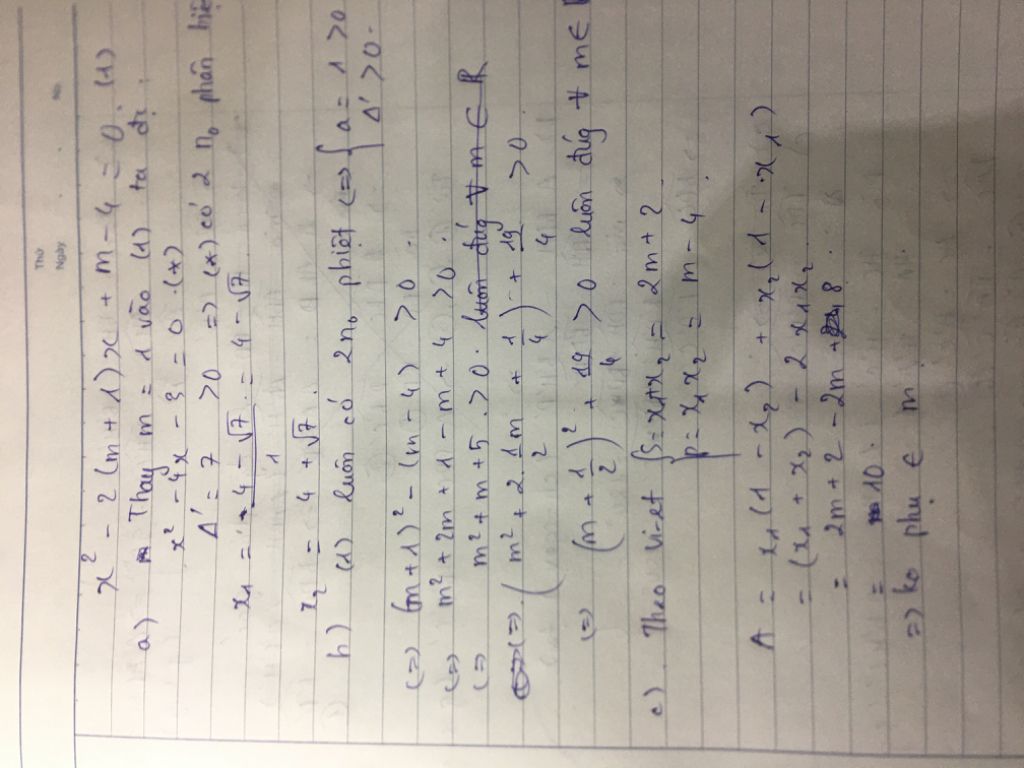 Thứ
Ngày No.
x² - 2(m+1)x + m - 4 = 0 (1)
a) Thay m = 1 vào (1) ta đc :
x² - 4x - 3 = 0 (*)
Δ' = 7 > 0 => (*) có 2 n₀ phân biệ
x₁ = 4 - √7 / 1 = 4 - √7
x₂ = 4 + √7.
b) (1) luôn có 2 n₀ phbiệt <=> { a = 1 > 0
Δ' > 0.
<=> (m+1)² - (m - 4) > 0
<=> m² + 2m + 1 - m + 4 > 0.
<=> m² + m + 5 > 0. luôn đúg ∀ m ∈ R
<=> (m² + 2.1/2 m + 1/4) + 19/4 > 0
<=> (m + 1/2)² + 19/4 > 0 luôn đúg ∀ m ∈ R
c) Theo vi-et { S = x₁+x₂ = 2m + 2
P = x₁x₂ = m - 4
A = x₁(1 - x₂) + x₂(1 - x₁)
= (x₁ + x₂) - 2x₁x₂
= 2m + 2 - 2m + 8.
= 10.
=> ko phụ ∈ m